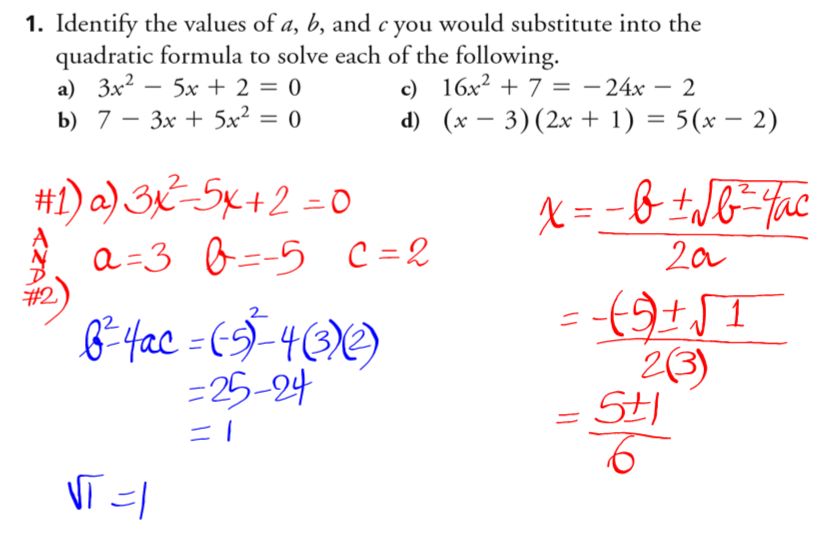 1. Identify the values of a, b, and c you would substitute into the
quadratic formula to solve each of the following.
a) 3x² − 5x + 2 = 0
c) 16x² + 7 = −24x − 2
b) 7 − 3x + 5x² = 0
d) (x − 3)(2x + 1) = 5(x − 2)
#1) a) 3x²−5x+2 = 0
AND
#2)
a=3 b=−5 c=2
b²−4ac = (−5)²−4(3)(2)
=25−24
=1
√1 = 1
x = −b ±√b²−4ac
2a
= −(−5)±√1
2(3)
= 5±1
6